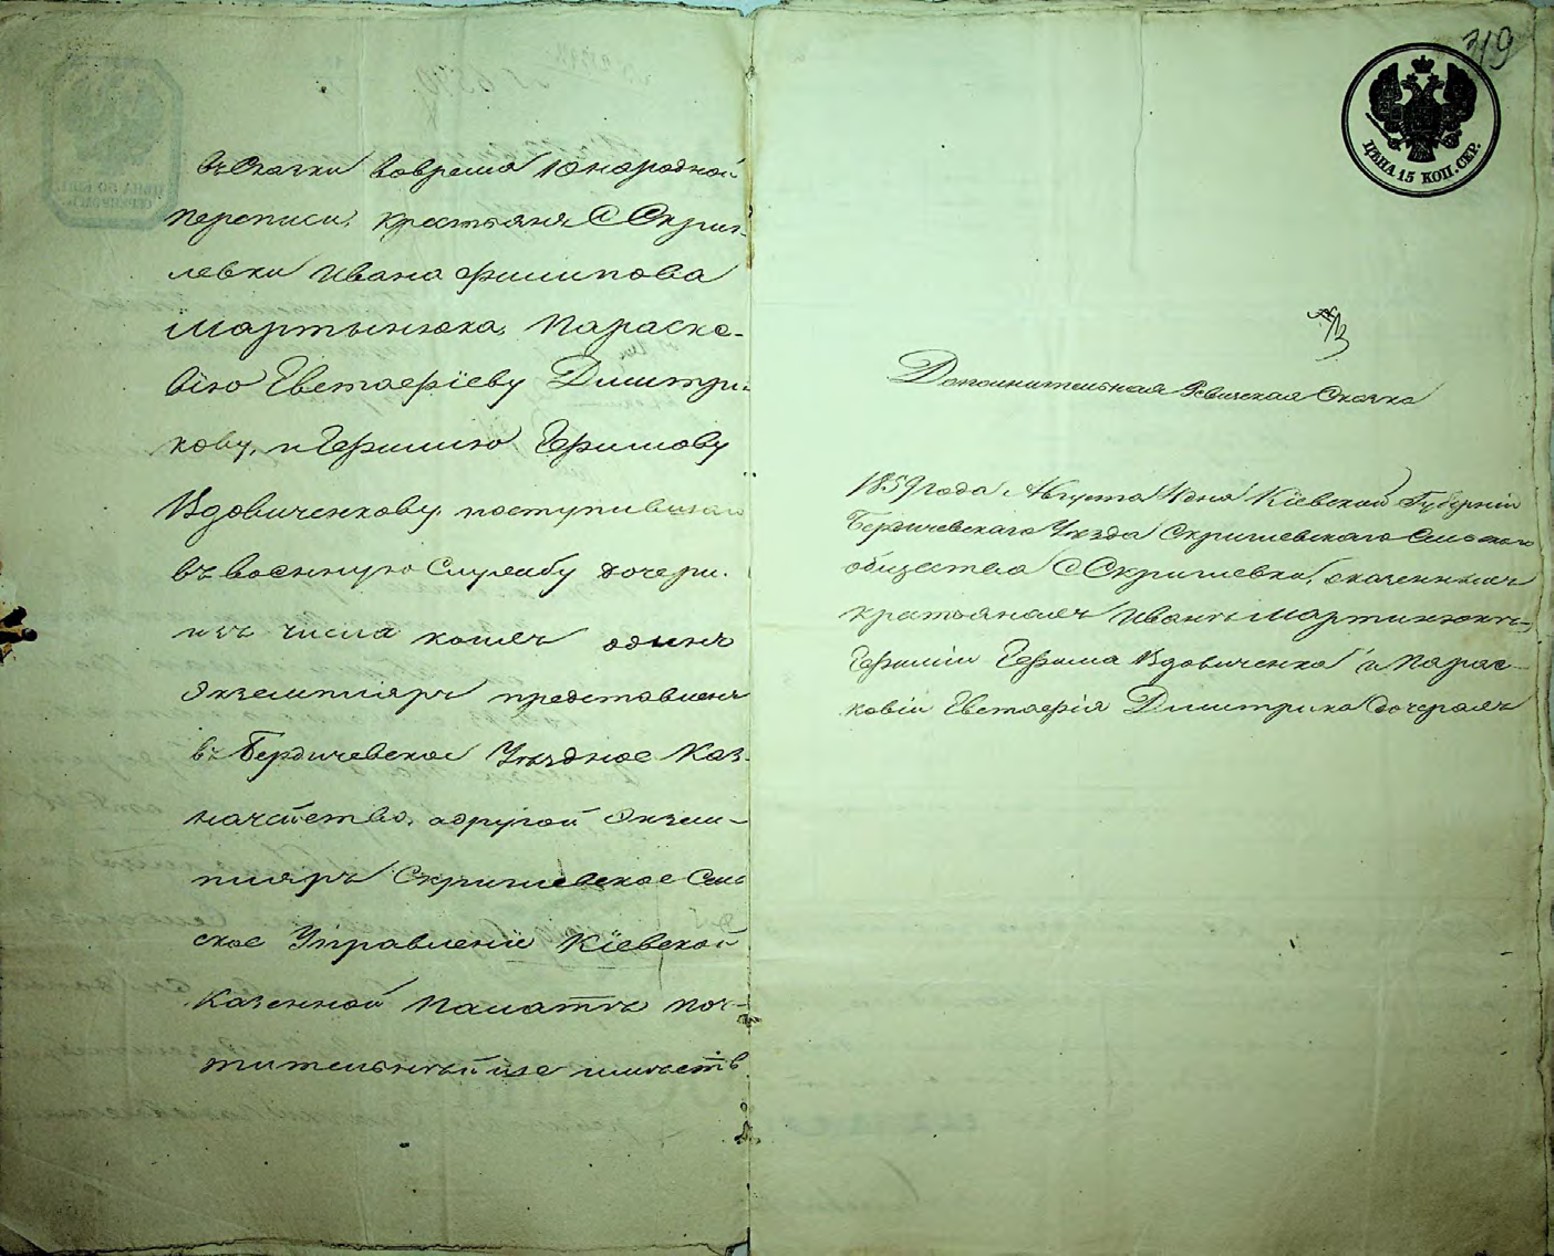 въ Сказки вовремя 10 народной
переписи, крестьянъ С Скриг-
левки Ивана Филипова
Мартынюка, Параске-
вію Евстафіеву Димитри-
кову, и Ефимію Ефимову
Вдовиченкову поступившая
въ военную Службу дочери.
изъ числа коихъ одинъ
Экземпляръ представленъ
въ Бердичевское Уѣздное Каз-
начейство, а другой Экзем-
пляръ Скриглевское Сель
ское Управленіе Кіевской
Казенной Палатѣ поч-
тительнѣйше имѣетъ
319
ЦѢНА 15 КОП. СЕР.
Дополнительная Ревизская Сказка
1859 года Августа дня Кіевской Губерніи
Бердичевскаго Уѣзда Скриглевскаго Сельскаго
общества С Скриглевки, о казенныхъ
крестьянахъ Иванѣ Мартинюкѣ,
Ефиміи Ефима Вдовиченка и Парас-
ковіи Евстафія Димитрика дочеряхъ